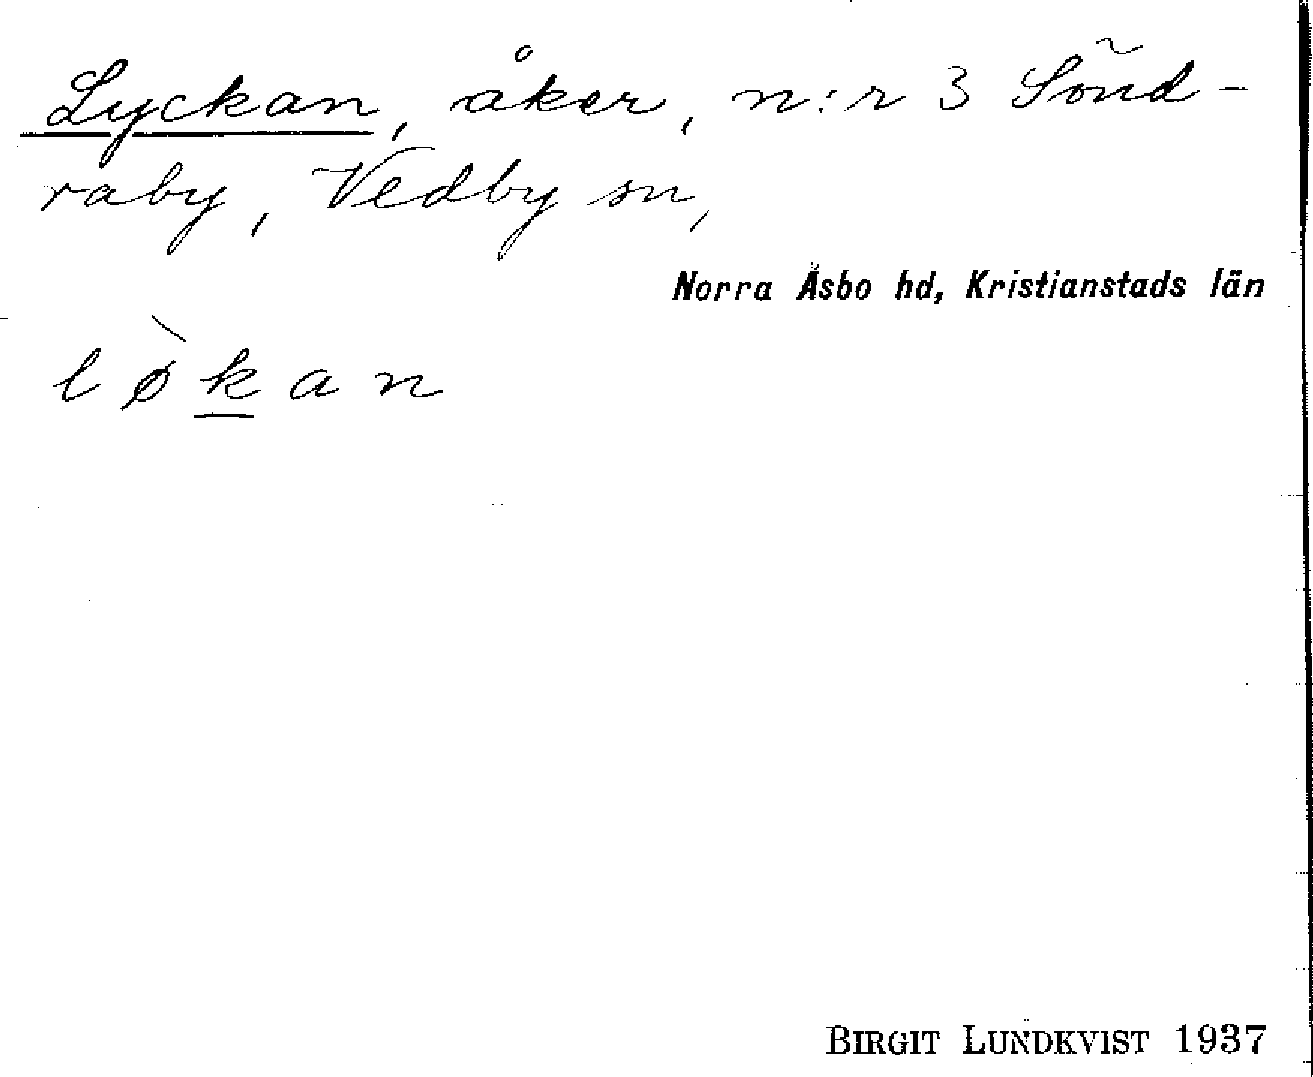 Lyckan, åker, n:r 3 Sönd-
raby, Vedby sn,
Norra Åsbo hd, Kristianstads län
lø̀k̲an
BIRGIT LUNDKVIST 1937